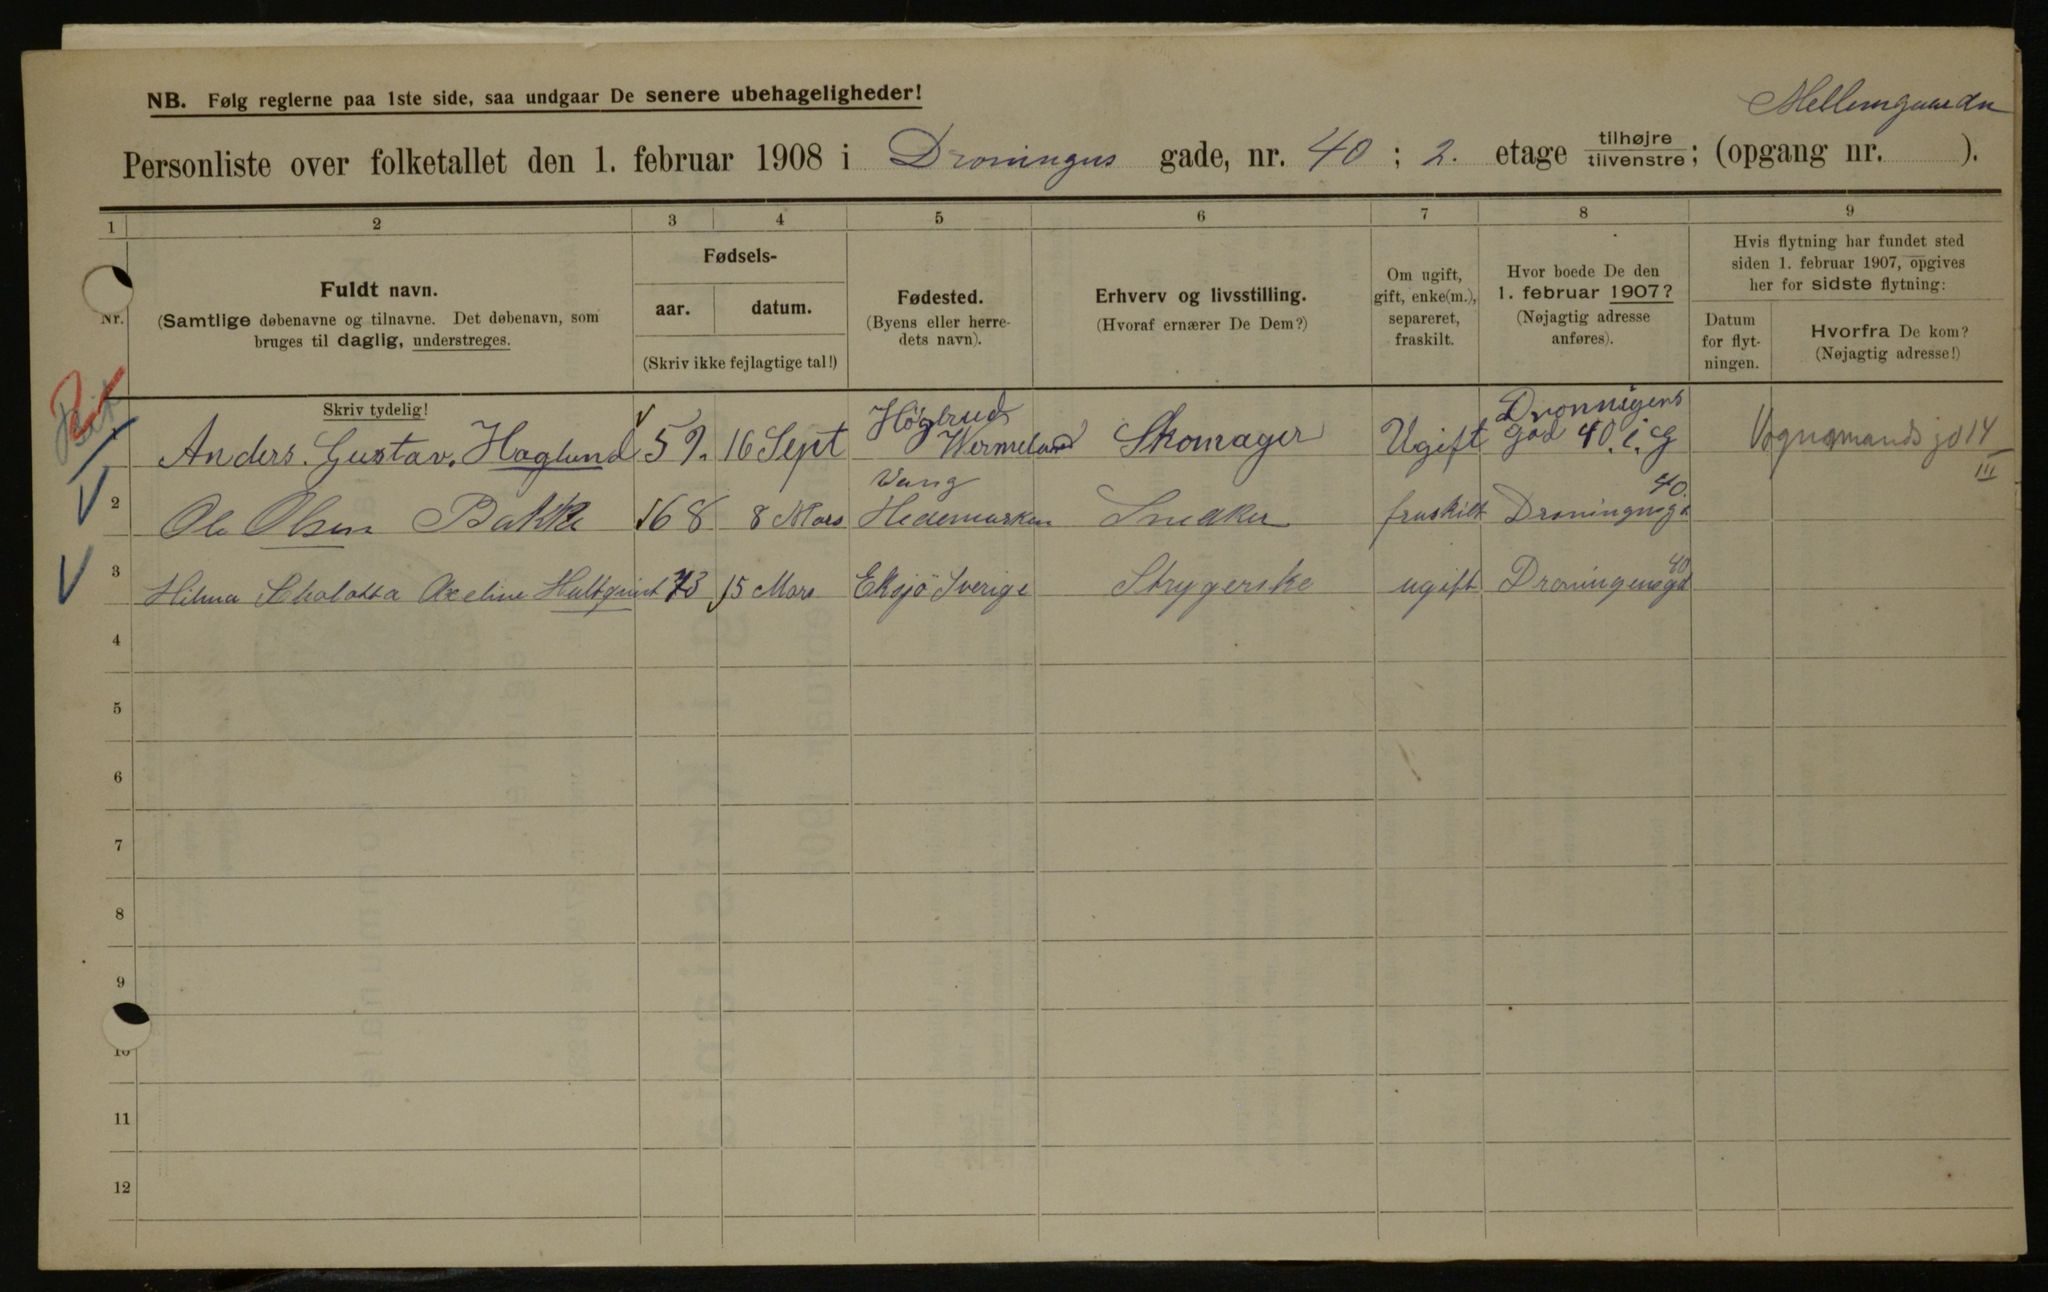 Mellemgaarden
NB. Følg reglerne paa 1ste side, saa undgaar De senere ubehageligheder!
Personliste over folketallet den 1. februar 1908 i Droningens gade, nr. 40 ; 2. etage tilhøjre / tilvenstre ; (opgang nr. ).
1 2 3 4 5 6 7 8 9
Nr.
Fuldt navn.
(Samtlige døbenavne og tilnavne. Det døbenavn, som
bruges til daglig, understreges.
Skriv tydelig!
Fødsels-
aar. datum.
(Skriv ikke fejlagtige tal!)
Fødested.
(Byens eller herre-
dets navn).
Erhverv og livsstilling.
(Hvoraf ernærer De Dem?)
Om ugift,
gift, enke(m.),
separeret,
fraskilt.
Hvor boede De den
1. februar 1907?
(Nøjagtig adresse
anføres).
Hvis flytning har fundet sted
siden 1. februar 1907, opgives
her for sidste flytning:
Datum
for flyt-
ningen.
Hvorfra De kom?
(Nøjagtig adresse!)
Anders. Gustav. Haglund 59. 16 Sept Högbrud Wermeland Skomager Ugift Dronnigens Gad 40. i. G Vognmandsgd 14 III
2 Ole Olsen Bakke 68 8 Mars Vang Hedemarken Snedker fraskilt Droningensgt 40.
3 Hilma Axeline Hultqvist 73 15 Mars Eksjö Sverige Strygerske ugift Droningensgd 40
4
5
6
7
8
9
10
11
12